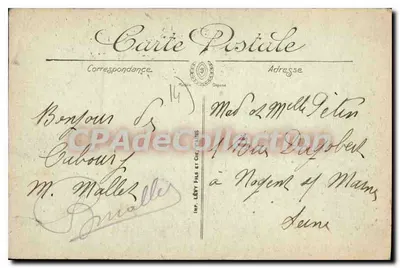 Carte Postale
Correspondance
Adresse
(14)
Bonjour de
Cabourg
M. Mallet
Mallet
CPADeCollection.com
IMP. LÉVY FILS ET CIE, PARIS
Med et Melle Pétin
Rue Dagobert
à Nogent s/ Marne
Seine